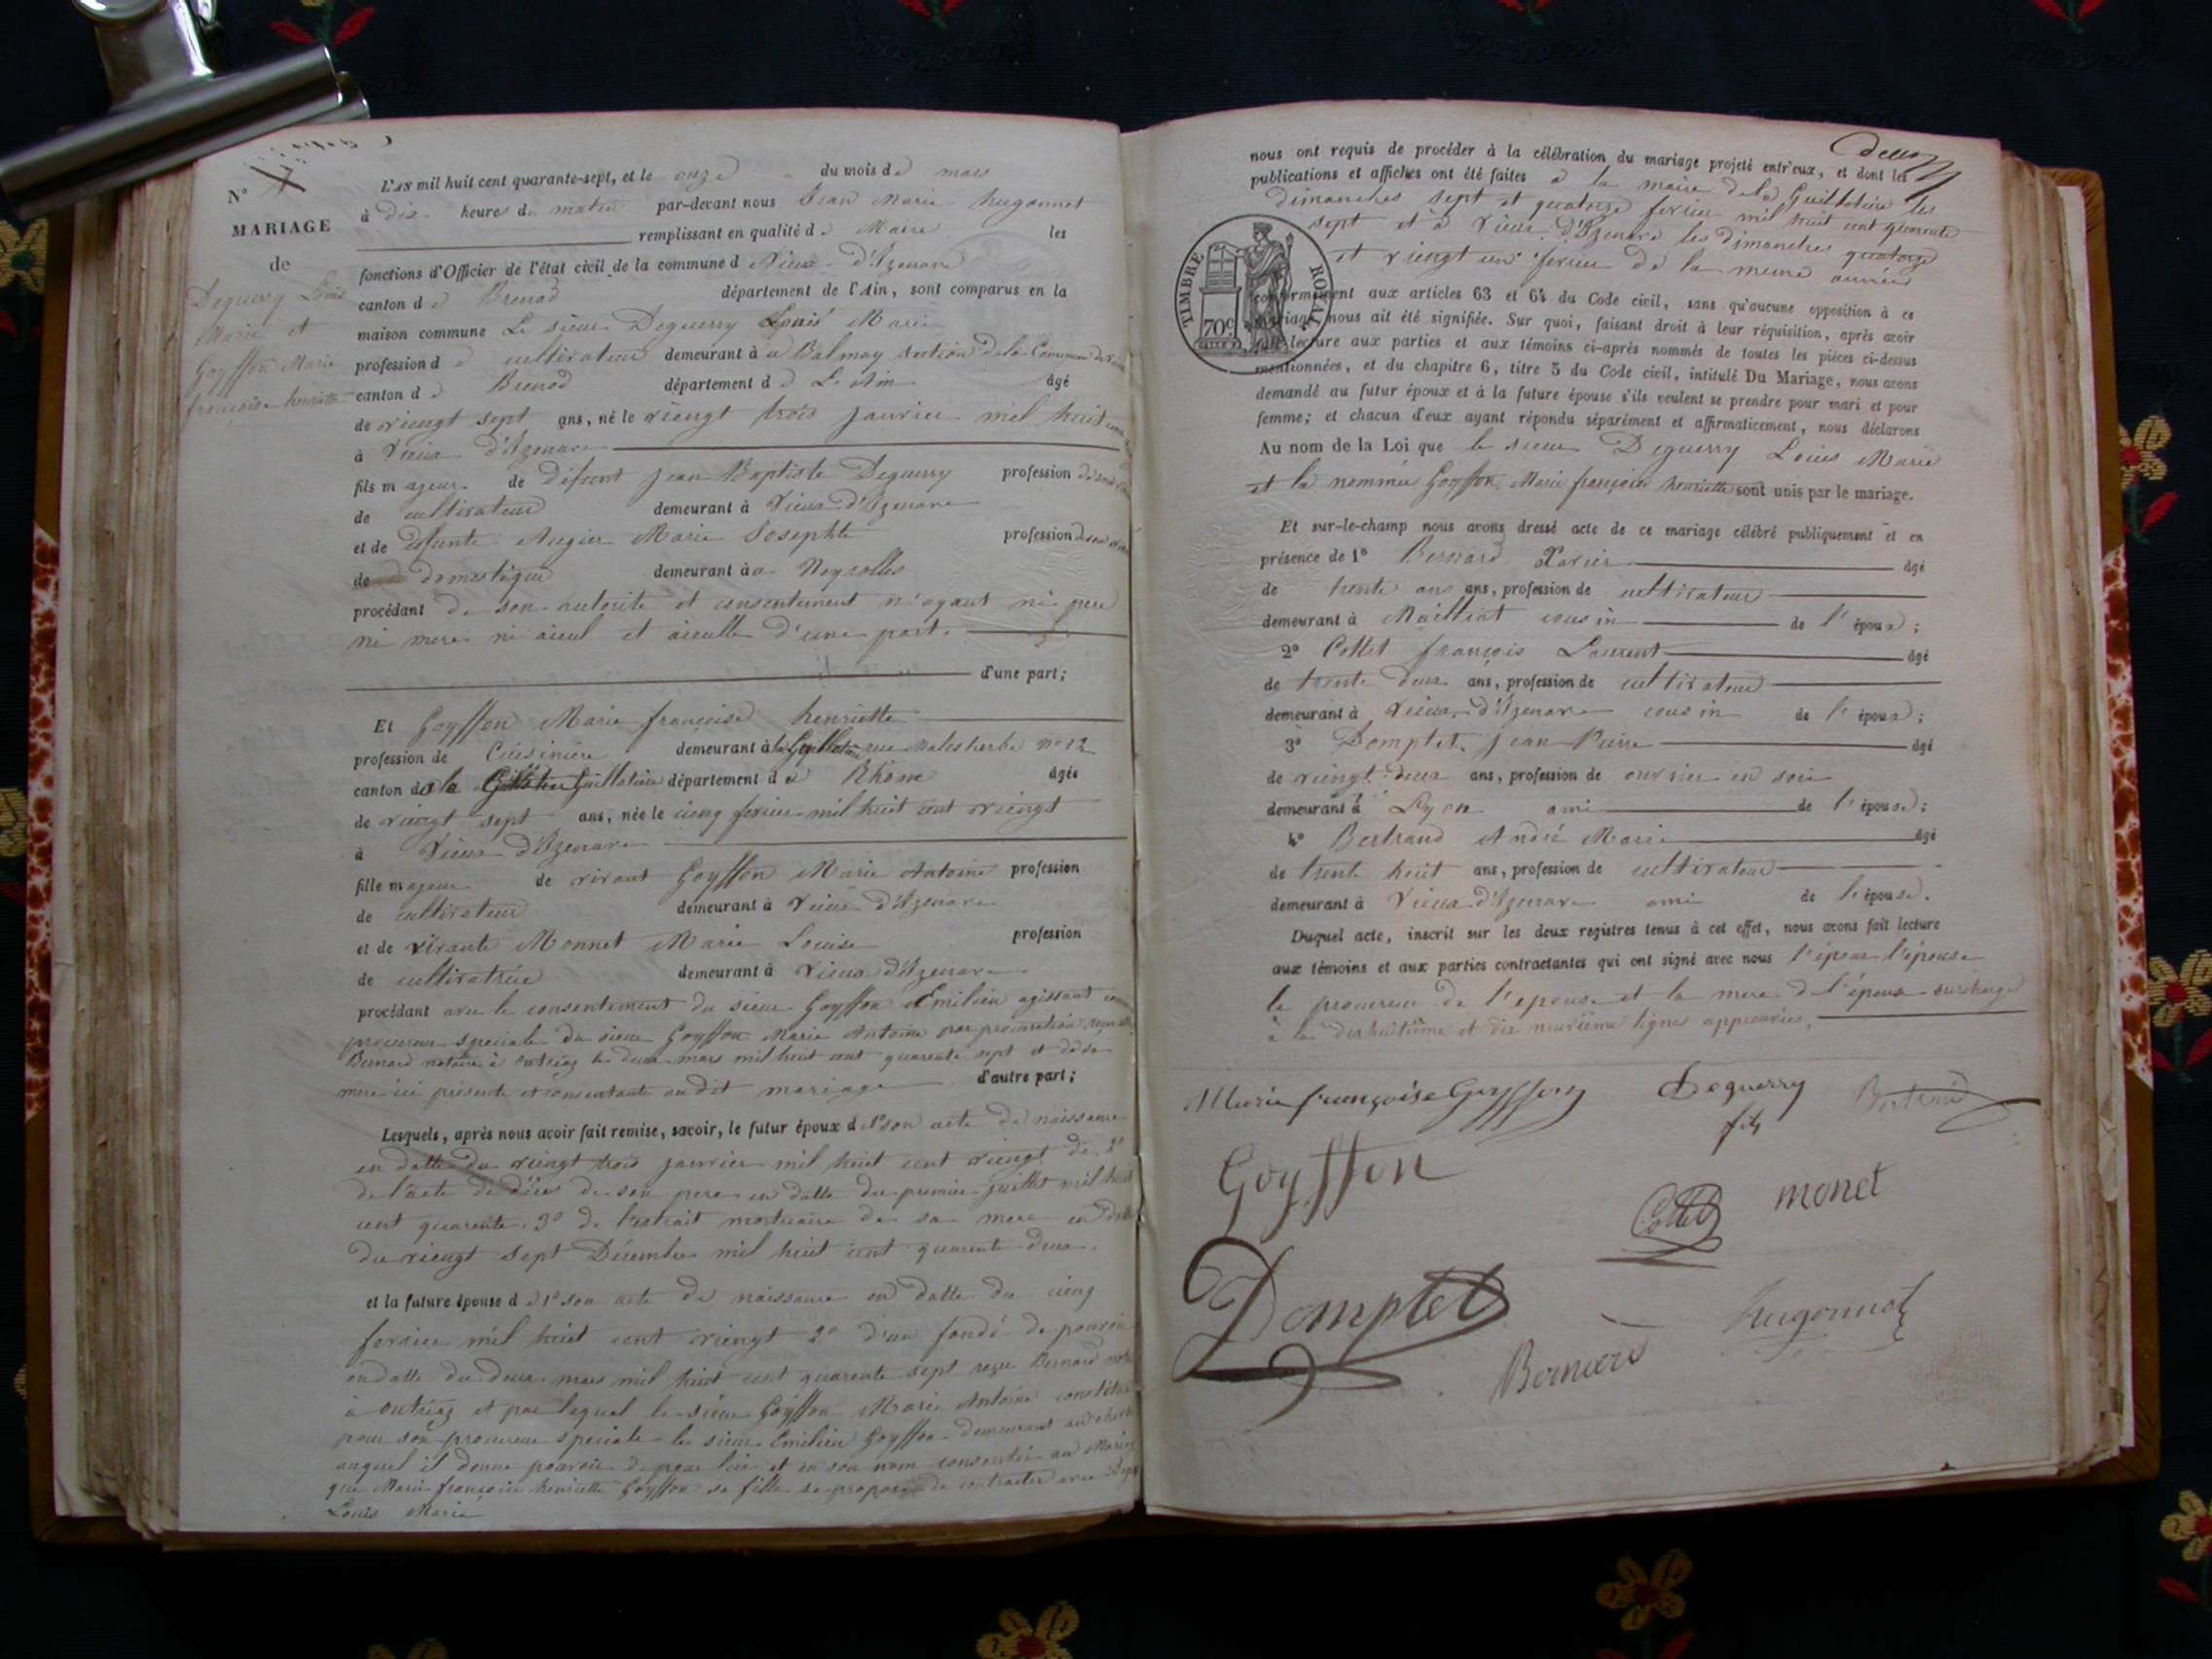 N°
MARIAGE
de
Deguerry Louis
Marie et
Goyffon Marie
françoise henriette
L'AN mil huit cent quarante-sept, et le onze du mois de mars
à dix heures du matin par-devant nous Jean Marie hugonnet
remplissant en qualité de Maire les
fonctions d'Officier de l'état civil de la commune d Vieux d'Izenave
canton de Brenod département de l'Ain, sont comparus en la
maison commune Le sieur Deguerry Louis Marie
profession de cultivateur demeurant à a Balmay section de la Commune de
canton de Brenod département de L'Ain âgé
de viengt sept ans, né le viengt trois janvier mil huit
à Vieux d'Izenave
fils majeur de défunt Jean Baptiste Deguerry profession
de cultivateur demeurant à Vieux d'Izenave
et de défunte Augier Marie Josephte profession
de domestique demeurant à a Neyrolles
procédant de son autorité et consentement n'ayant ni pere
ni mere ni aieul et aieulle d'une part.
d'une part;
Et Goyffon Marie françoise henriette
profession de Cuisinière demeurant à la Guillotière rue Malesherbe n° 12
canton de la Guillotière département de Rhône âgée
de viengt sept ans, née le cinq fevrier mil huit cent viengt
à Vieux d'Izenave
fille majeure de vivant Goyffon Marie Antoine profession
de cultivateur demeurant à Vieux d'Izenave
et de vivante Monnet Marie Louise profession
de cultivatrice demeurant à Vieux d'Izenave
procédant avec le consentement du sieur Goyffon Emilien agissant
procureur speciale du sieur Goyffon Marie Antoine par procuration
Bernard notaire à outriaz le deux mars mil huit cent quarente sept et de sa
mere ici présente et consentante au dit mariage d'autre part;
Lesquels, après nous avoir fait remise, savoir, le futur époux d 1° son acte de naissance
en datte du viengt trois janvier mil huit cent viengt de 2°
de l'acte de décès de son pere en datte du premier juillet mil huit
cent quarente. 3° de l'extrait mortuaire de sa mere en
du viengt sept Décembre mil huit cent quarente deux.
et la future épouse d 1° son acte de naissance en datte du cinq
fevrier mil huit cent viengt 2° d'un fondé de pouvoir
en datte du deux mars mil huit cent quarente sept reçu Bernard
à outriaz et par lequel le sieur Goyffon Marie Antoine
pour son procureur speciale le sieur Emilien Goyffon demeurant
auquel il donne pouvoir de pour lui et en son nom consentir au
que Marie françoise henriette Goyffon sa fille se propose de contracter avec
Louis Marie
deux
nous ont requis de procéder à la célébration du mariage projeté entr'eux, et dont les
publications et affiches ont été faites a la mairie de la Guillotière les
dimanches sept et quatorze fevrier mil huit cent quarente
sept et à Vieux d'Izenave les dimanches quatorze
et viengt un fevrier de la meme année
TIMBRE ROYAL
70c
conformément aux articles 63 et 64 du Code civil, sans qu'aucune opposition à ce
mariage nous ait été signifiée. Sur quoi, faisant droit à leur réquisition, après avoir
fait lecture aux parties et aux témoins ci-après nommés de toutes les pièces ci-dessus
mentionnées, et du chapitre 6, titre 5 du Code civil, intitulé Du Mariage, nous avons
demandé au futur époux et à la future épouse s'ils veulent se prendre pour mari et pour
femme; et chacun d'eux ayant répondu séparément et affirmativement, nous déclarons
Au nom de la Loi que le sieur Deguerry Louis Marie
et la nommée Goyffon Marie françoise henriette sont unis par le mariage.
Et sur-le-champ nous avons dressé acte de ce mariage célébré publiquement et en
présence de 1° Bernard Xavier âgé
de trente ans ans, profession de cultivateur
demeurant à Maillat cousin de l'époux;
2° Collet françois Laurent âgé
de trente deux ans, profession de cultivateur
demeurant à Vieux d'Izenave cousin de l'époux;
3° Domptet Jean Pierre âgé
de viengt deux ans, profession de ouvrier en soie
demeurant à Lyon ami de l'épouse;
4° Bertrand André Marie âgé
de trente huit ans, profession de cultivateur
demeurant à Vieux d'Izenave ami de l'épouse.
Duquel acte, inscrit sur les deux registres tenus à cet effet, nous avons fait lecture
aux témoins et aux parties contractantes qui ont signé avec nous l'époux l'épouse
le procureur de l'epouse et la mere de l'épouse surcharge
à la dixhuitième et dix neuvième ligne approuvées.
Marie françoise Goyffon Deguerry fils
Goyffon Collet monet
Domptet Bernard hugonnet